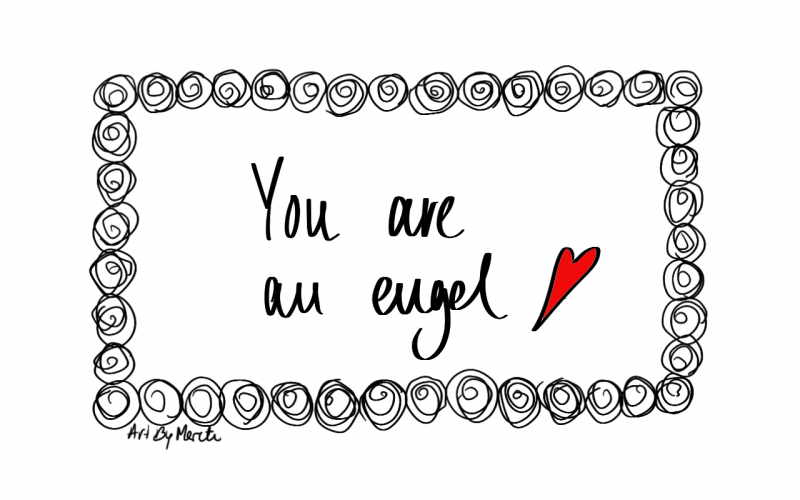 You are
an engel
Art By